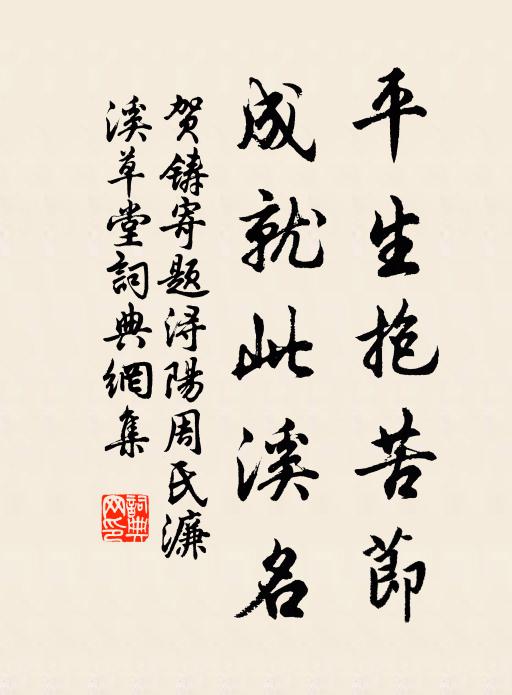 平生抱苦節
成就此溪名
贺鑄寄題潯陽周氏濂
溪草堂詞典網集
詞典网印